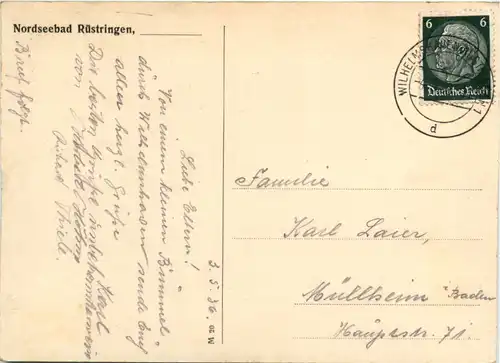 Nordseebad Rüstringen,
Brief folgt.
3. 5. 36.
Liebe Eltern!
Von einem kleinen Bummel
durch Wilhelmshaven sende Euch
allen herzl. Grüße
Karl
Die besten Grüße unbekannterweise
von
Richard Thiele.
W 20
WILHELMSHAVEN
d
6 6
Deutsches Reich
Familie
Karl Laier,
Müllheim Baden
Hauptstr. 71.